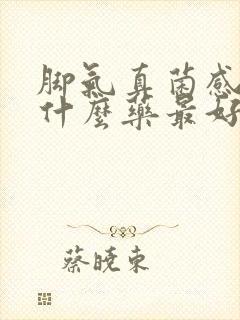 脚氣真菌感
什麼藥最好
蔡曉東